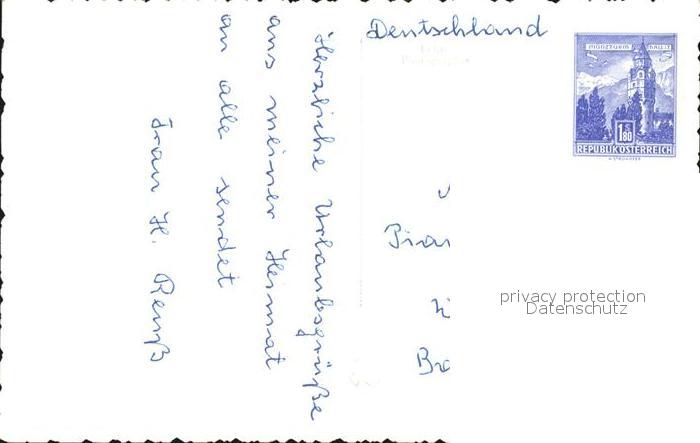 Deutschland
Herzliche Urlaubsgrüße
aus meiner Heimat
an alle sendet
Frau H. Renß
MÜNZTURM HALL I.T.
S
1.80
REPUBLIK ÖSTERREICH
privacy protection
Datenschutz